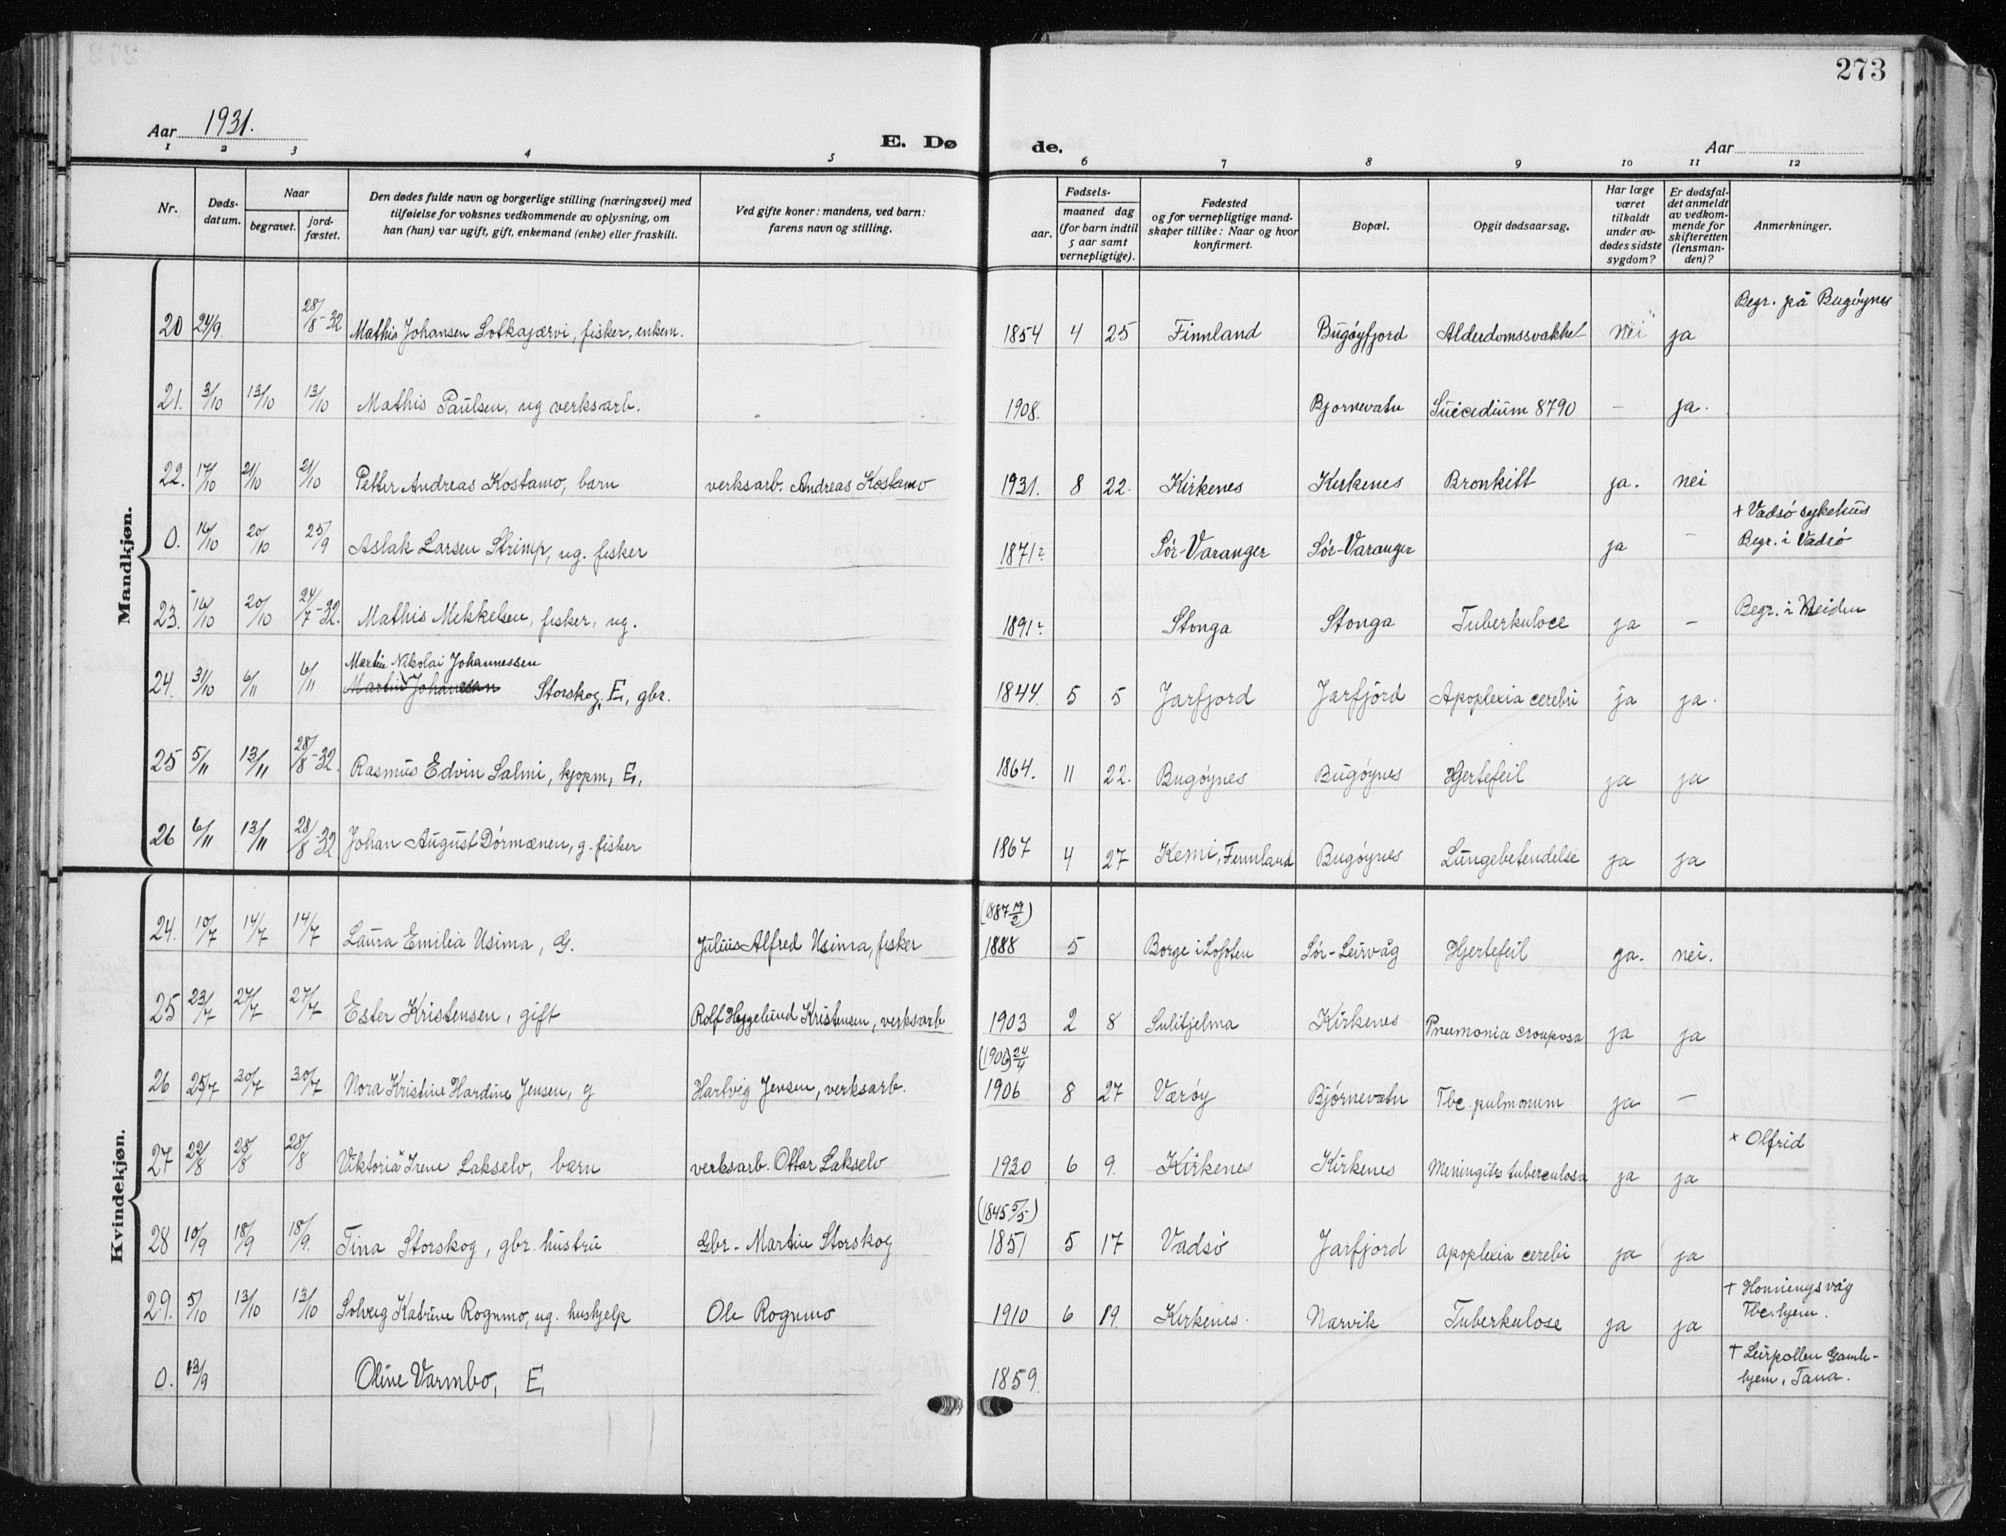 273
Aar 1931.
E. Dø de.
Aar
1 2 3 4 5 6 7 8 9 10 11 12
Nr.
Døds-
datum.
Naar
begravet.
jord-
fæstet.
Den dødes fulde navn og borgerlige stilling (næringsvei) med
tilføielse for voksnes vedkommende av oplysning, om
han (hun) var ugift, gift, enkemand (enke) eller fraskilt.
Ved gifte koner: mandens, ved barn:
farens navn og stilling.
Fødsels-
aar.
maaned dag
(for barn indtil
5 aar samt
vernepligtige).
Fødested
og for vernepligtige mand-
skaper tillike: Naar og hvor
konfirmert.
Bopæl.
Opgit dødsaarsag.
Har læge
været
tilkaldt
under av-
dødes sidste
sygdom?
Er dødsfal-
det anmeldt
av vedkom-
mende for
skifteretten
(lensman-
den)?
Anmerkninger.
Mandkjøn.
Begr. på Bugøynes
20 24/9. 28/8-32 Mathis Johansen Lotkajærvi, fisker, enkem. 1854 4 25 Finnland Bugøyfjord Alderdomssvakhet nei ja
21. 3/10 13/10 13/10 Mathis Paulsen, ug verksarb. 1908. Bjornevatn Suicidium 8790 – ja.
22. 17/10 21/10 21/10 Petter Andreas Kostamo, barn verksarb. Andreas Kostamo 1931. 8 22. Kirkenes Kirkenes Bronkitt ja. nei
+ Vadsø sykehus
0. 16/10 20/10 25/9 Aslak Larsen Strimp, ug. fisker 1871? Sør-Varanger Sør-Varanger ja – Begr. i Vadsø
23. 16/10 20/10 24/7-32. Mathis Mekkelsen, fisker, ug. 1891? Stonga Stonga Tuberkulose ja – Begr. i Neiden
Martin Nikolai Johannessen
24. 31/10 6/11 6/11 Martin Johansen Storskog, E, gbr. 1844. 5 5 Jarfjord Jarfjord Apoplexia cerebri ja ja.
25 5/11 13/11 28/8-32. Rasmus Edvin Salmi, kjøpm, E, 1864. 11 22. Bugøynes Bugøynes Hjertefeil ja ja
26 6/11 13/11 28/8-32 Johan August Dørmænen, g. fisker 1867 4 27 Kemi, Finnland Bugøynes Lungebetendelse ja ja
Kvindekjøn.
(1887 19/2)
24. 10/7 14/7 14/7 Laura Emilia Usima, G. Julius Alfred Usima, fisker 1888 5 Borge i Lofoten Sør-Leirvåg Hjertefeil ja. nei.
25 23/7 27/7 27/7 Ester Kristensen, gift Rolf Heggelund Kristensen, verksarb 1903 2 8 Sulitjelma Kirkenes Pneumonia crouposa ja ja
(1906) 24/4
26 25/7 30/7 30/7 Nora Kristine Hardine Jensen, g Hartvig Jensen, verksarb. 1906 8 27 Værøy Bjørnevatn Tbc. pulmonum ja –
x Olfrid
27 22/8 28/8 28/8 Viktoria x Irene Lakselv, barn verksarb. Ottar Lakselv 1930 6 9. Kirkenes Kirkenes Meningitis tuberculosa ja ja
(1845 5/5)
28 10/9 18/9 18/9. Tina Storskog, gbr. hustru Gbr. Martin Storskog 1851 5 17 Vadsø Jarfjord apoplexia cerebi ja ja
+ Honningsvåg
29. 5/10 13/10 13/10 Solveig Katrine Rognmo, ug. hushjelp Ole Rognmo 1910 6 19. Kirkenes. Narvik Tuberkulose ja ja Tbc. hjem.
+ Leirpollen Gamle-
0. 13/9 Oline Varmbo, E, 1859. hjem, Tana.